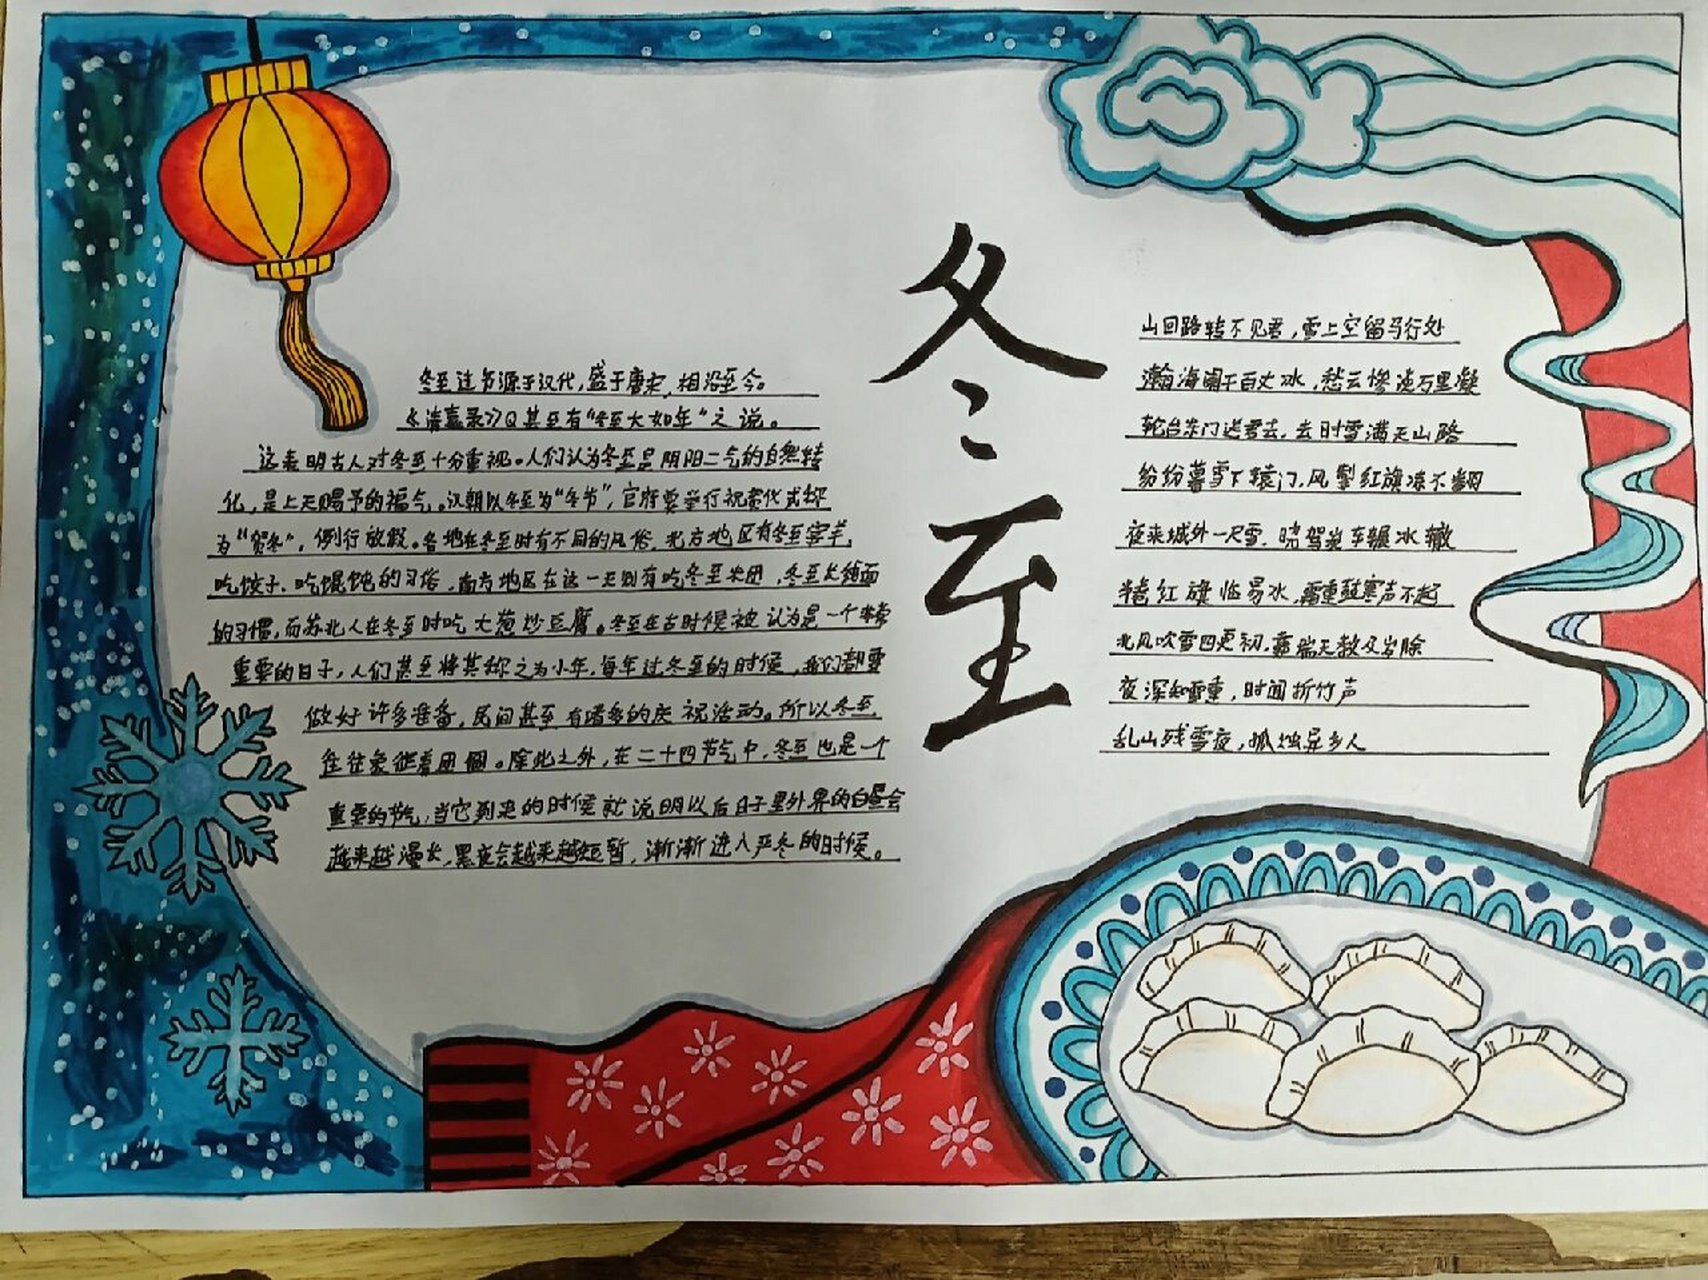 冬至过节源于汉代，盛于唐宋，相沿至今。
《清嘉录》Q甚至有“冬至大如年”之说。
这表明古人对冬至十分重视。人们认为冬至是阴阳二气的自然转
化，是上天赐予的福气。汉朝以冬至为“冬节”，官府要举行祝贺仪式称
为“贺冬”，例行放假。各地在冬至时有不同的风俗，北方地区有冬至宰羊，
吃饺子、吃馄饨的习俗，南方地区在这一天则有吃冬至米团，冬至长线面
的习惯，而苏北人在冬至时吃大葱炒豆腐。冬至在古时候被认为是一个非常
重要的日子，人们甚至将其称之为小年，每年过冬至的时候，我们都要
做好许多准备，民间甚至有诸多的庆祝活动。所以冬至，
往往象征着团圆。除此之外，在二十四节气中，冬至也是一个
重要的节气，当它到来的时候就说明以后日子里外界的白昼会
越来越漫长，黑夜会越来越短暂，渐渐进入严冬的时候。
冬至
山回路转不见君，雪上空留马行处
瀚海阑干百丈冰，愁云惨淡万里凝
轮台东门送君去，去时雪满天山路
纷纷暮雪下辕门，风掣红旗冻不翻
夜来城外一尺雪，晓驾炭车辗冰辙
半卷红旗临易水，霜重鼓寒声不起
北风吹雪四更初，嘉瑞天教及岁除
夜深知雪重，时闻折竹声
乱山残雪夜，孤烛异乡人